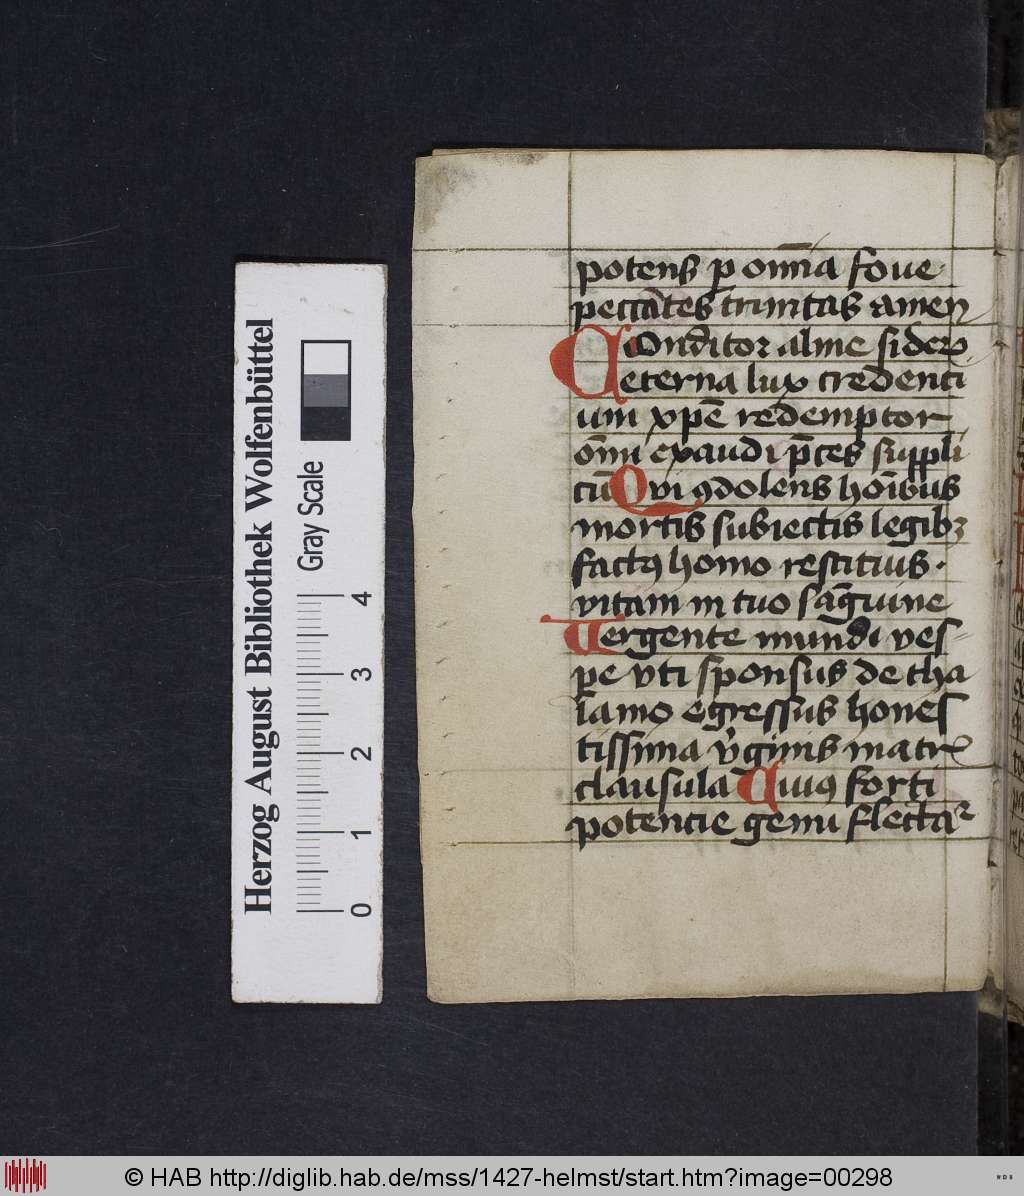 potens p̄ om̄ia fove
peccātes trinitas amen
Conditor alme siderꝝ
eterna lux credenti
um xpē redemptor
om̄i exaudi p̄ces suppli
cū Qvi ꝯdolens hoı̄bus
mortis subiectis legibꝫ
factꝰ homo restituis ·
vitam in tuo sāgvine
Uergente mundi ves-
pe vti sponsus de tha
lamo egressus hones
tissima v̄ginis matrꝭ
clausula Cuiꝰ forti
potencie genu flectāꝛ
Herzog August Bibliothek Wolfenbüttel
Gray Scale
0 1 2 3 4
© HAB http://diglib.hab.de/mss/1427-helmst/start.htm?image=00298